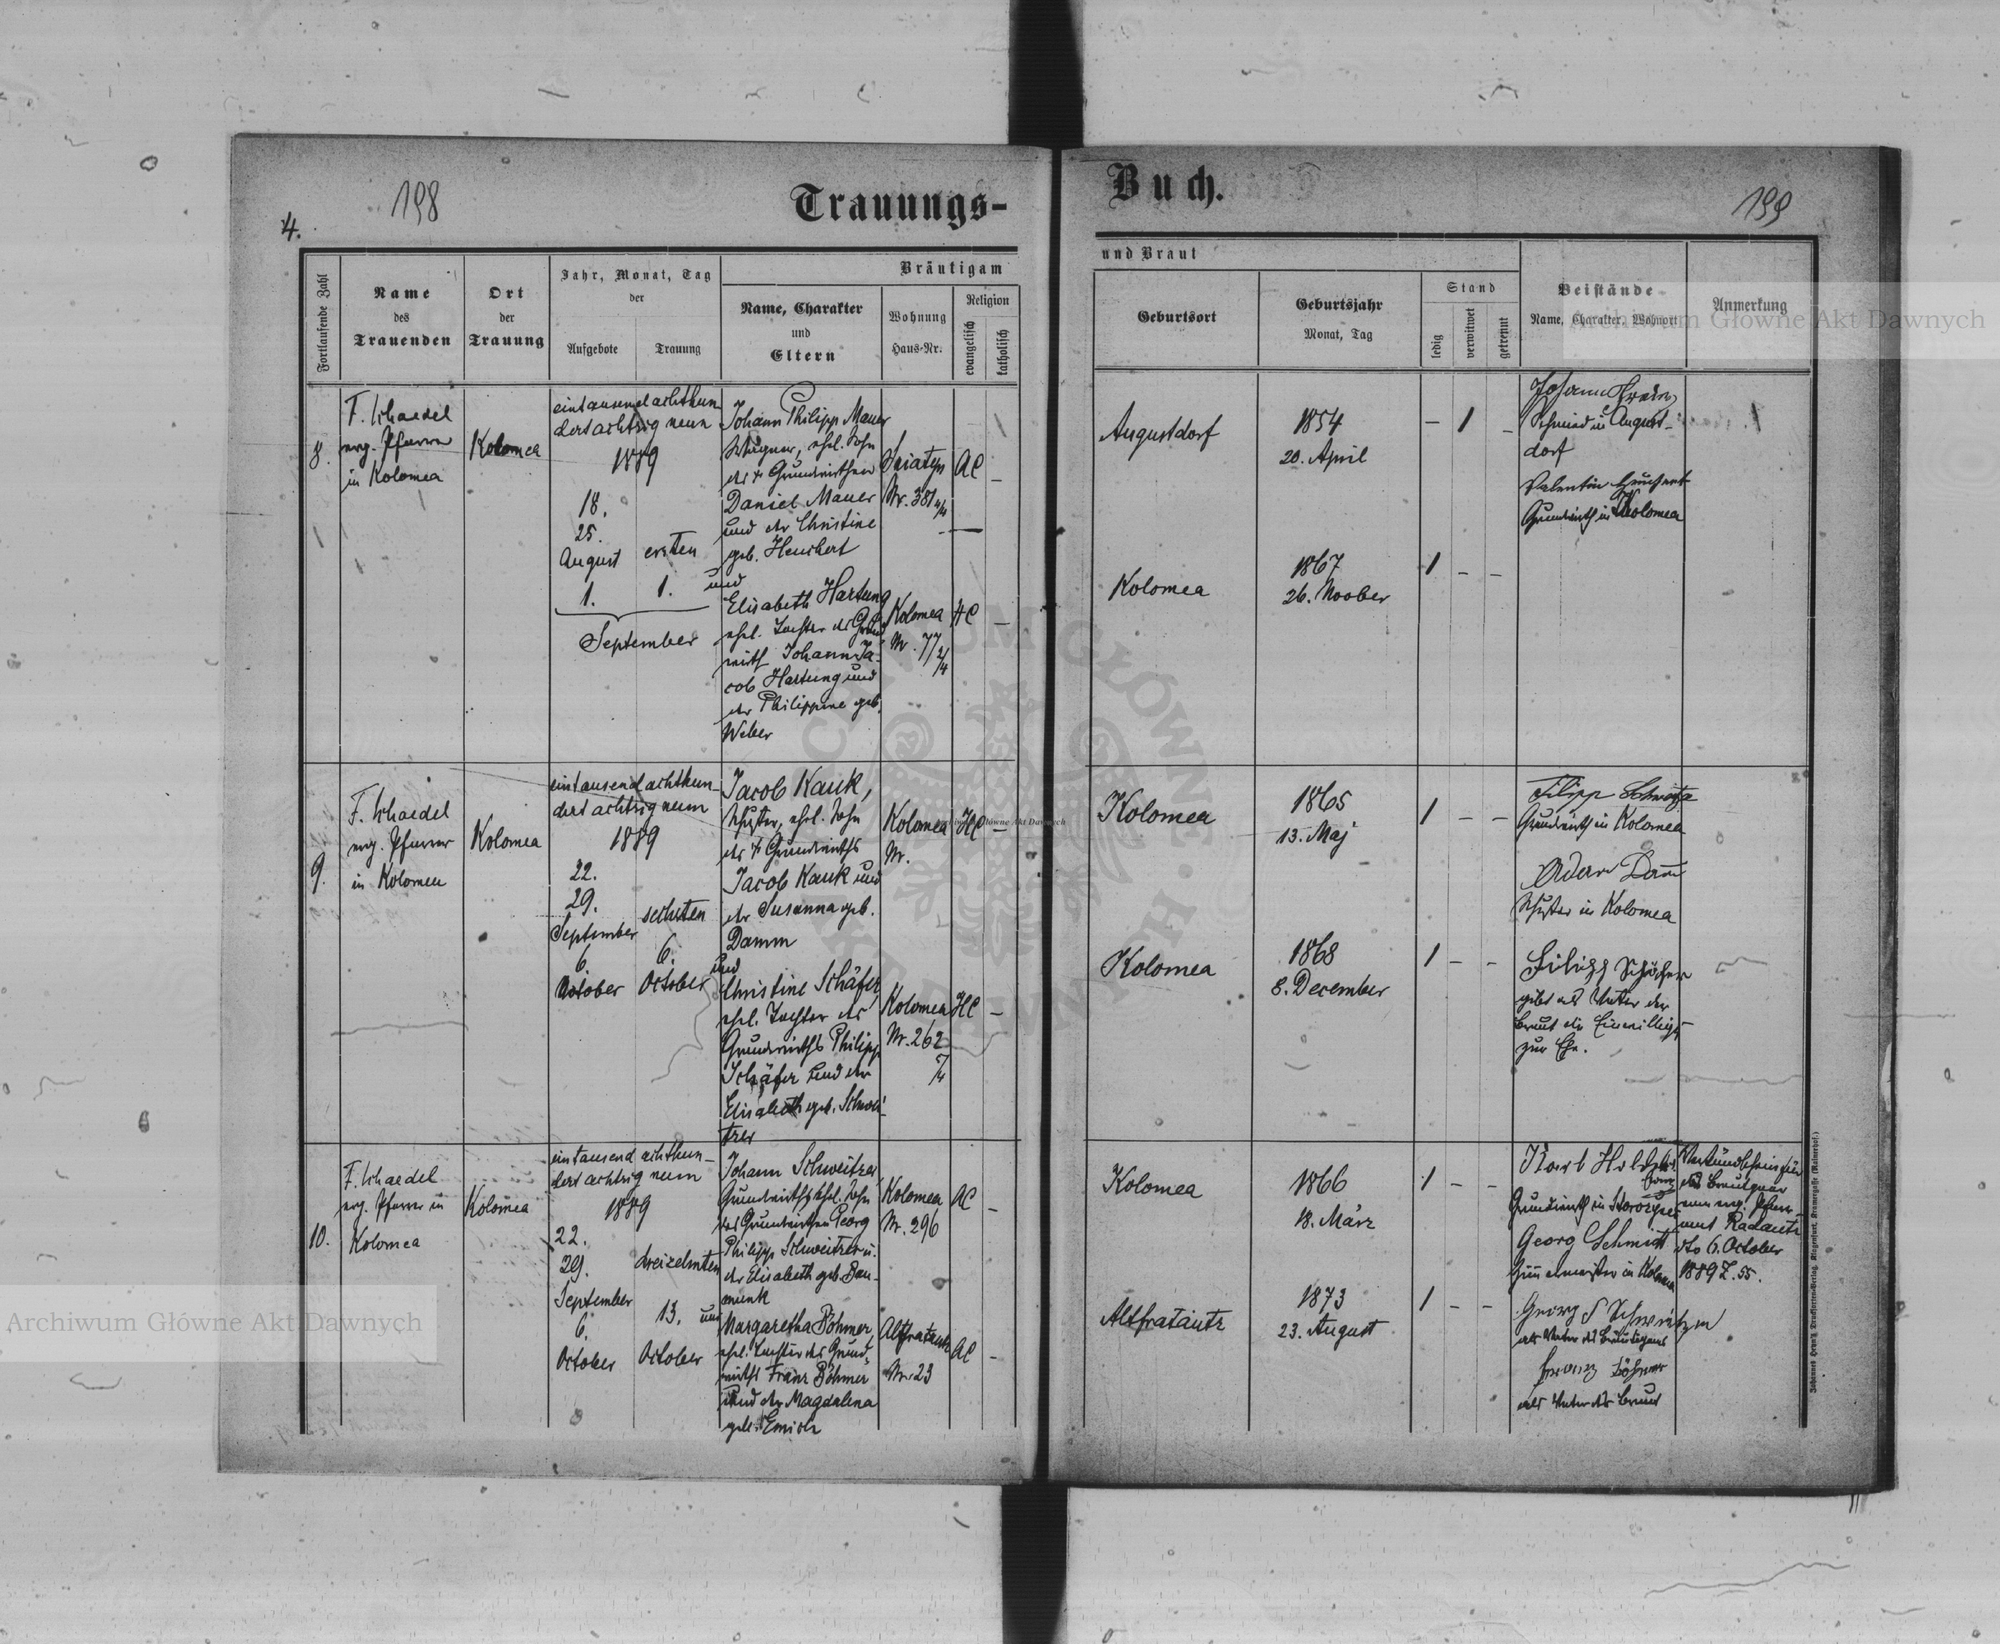 198
4.
Trauungs-
Fortlaufende Zahl
Name
des
Trauenden
Ort
der
Trauung
Jahr, Monat, Tag
der
Aufgebote
Trauung
Bräutigam
Name, Charakter
und
Eltern
Wohnung
Haus-Nr.
Religion
evangelisch
katholisch
8.
F. Schaedel
evg. Pfarrer
in Kolomea
Kolomea
eintausend achthun
dert achtzig neun
1889
18.
25.
August
1.
ersten
1.
September
Johann Philipp Mauer
Wagner, ehel. Sohn
des + Grundwirthen
Daniel Mauer
und der Christine
geb. Heuchert
und
Elisabeth Hartung
ehel. Tochter des Grund
wirth Johann Ja-
cob Hartung und
der Philippine geb.
Weber
Sniatyn
Nr. 381
AC
–
Kolomea
Nr. 77
HC
–
9.
F. Schaedel
evg. Pfarrer
in Kolomea
Kolomea
eintausend achthun-
dert achtzig neun
1889
22.
29.
September
6.
October
sechsten
6.
October
Jacob Kauk,
Schuster, ehel. Sohn
des + Grundwirths
Jacob Kauk und
der Susanna geb.
Damm
und
Christine Schäfer,
ehel. Tochter des
Grundwirths Philipp
Schäfer und der
Elisabeth geb. Schwei-
tzer
Kolomea
Nr.
HC
–
Kolomea
Nr. 262
HC
–
10.
F. Schaedel
evg. Pfarrer in
Kolomea
Kolomea
eintausend achthun-
dert achtzig neun
1889
22.
29.
September
6.
October
dreizehnten
13.
October
Johann Schweitzer,
Grundwirth, ehel. Sohn
des Grundwirthen Georg
Philipp Schweitzer u.
der Elisabeth geb. Bau-
munk
und
Margaretha Böhmer
ehel. Tochter des Grund-
wirths Franz Böhmer
und der Magdalena
geb. Emich
Kolomea
Nr. 296
AC
–
Altfratautz
Nr. 23
AC
–
Buch.
199
und Braut
Geburtsort
Geburtsjahr
Monat, Tag
Stand
ledig
verwitwet
getrennt
Beistände
Name, Charakter, Wohnort
Anmerkung
Augustdorf
1854
20. April
– 1 –
Johann
Schmied in August-
dorf
Valentin Heuchert
Grundwirth in Kolomea
Kolomea
1867
26. Noober
1 – –
Kolomea
1865
13. Maj
1 – –
Filipp
Grundwirth in Kolomea
Adam Damm
Schuster in Kolomea
Kolomea
1868
8. December
1 – –
Filipp Schäfer
gibt als Vater der
Braut die Einwilligg
zur Ehe.
Kolomea
1866
18. März
1 – –
Grundwirth in
Georg Schmidt
in Kolomea
Verkündschein für
das Brautpaar
vom evg. Pfarr-
amt Radautz
dto 6. October
1889 Z. 55.
Altfratautz
1873
23. August
1 – –
Georg
als Vater des Bräutigams
Franz Böhmer
als Vater der Braut
Archiwum Główne Akt Dawnych
Archiwum Główne Akt Dawnych
Archiwum Główne Akt Dawnych